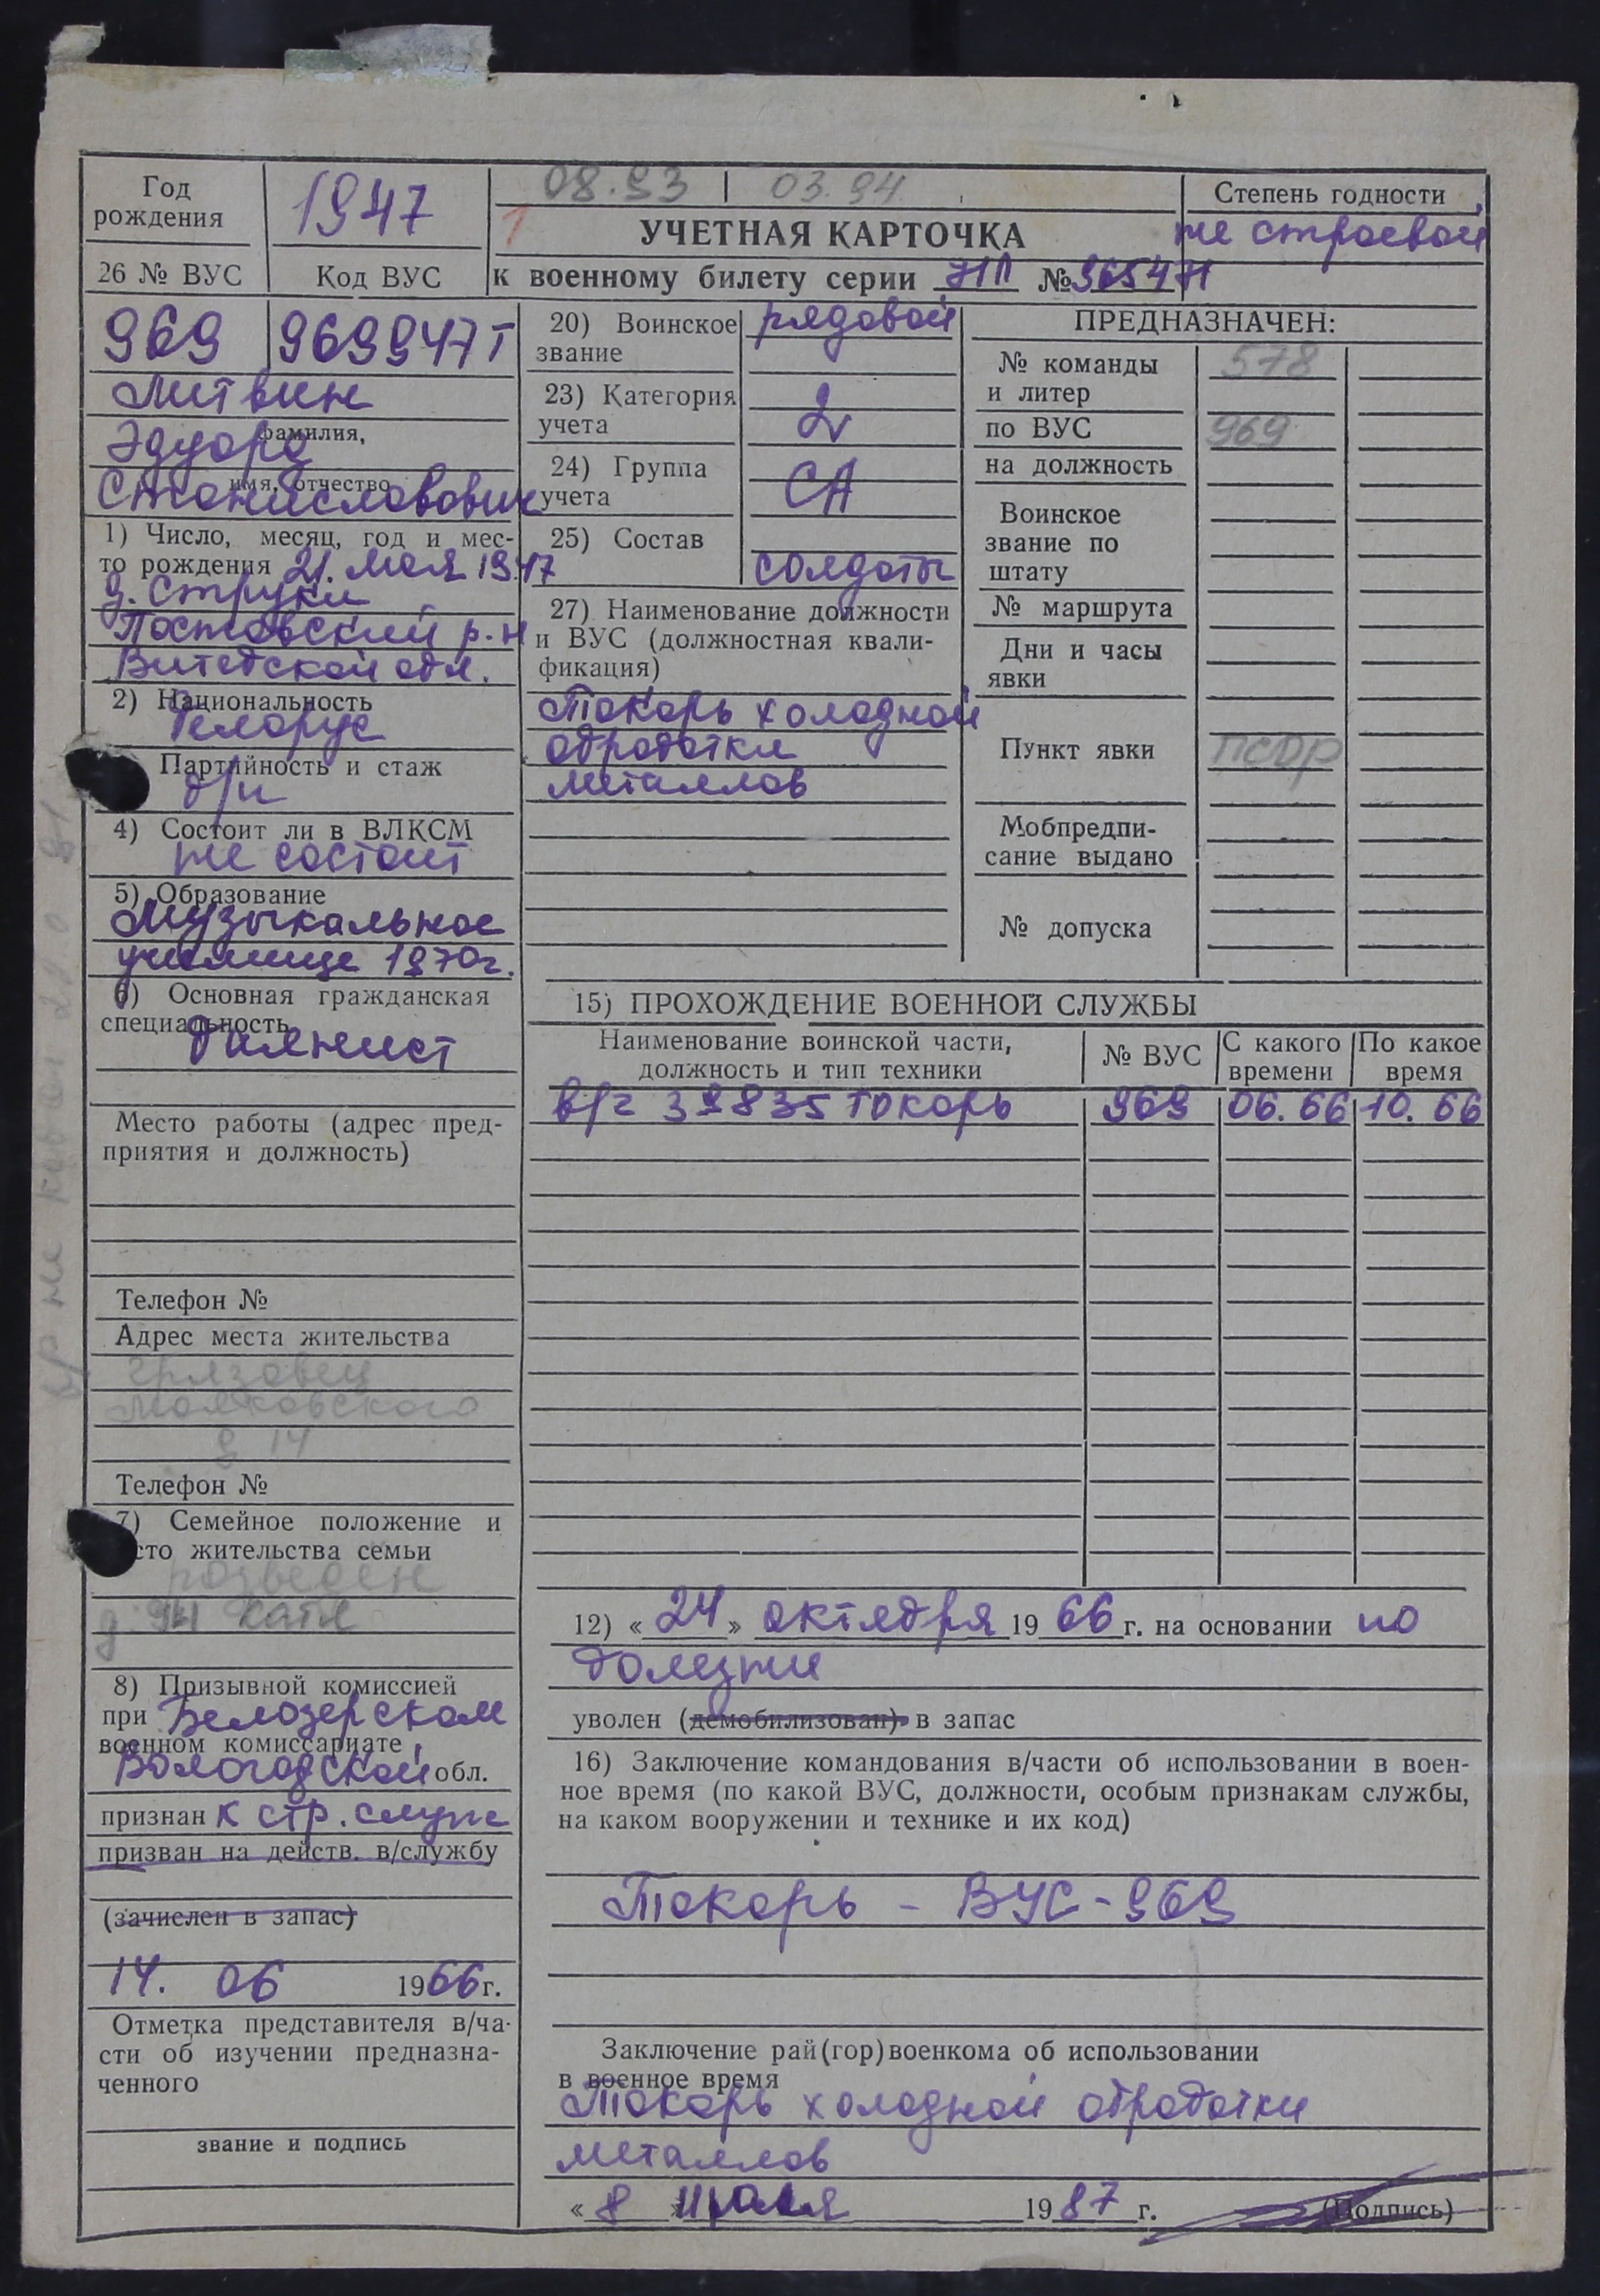 Год
рождения
1947
08.93 | 03.94
1
УЧЕТНАЯ КАРТОЧКА
к военному билету серии НП № 9654
Степень годности
не строевой
26 № ВУС
Код ВУС
969
969947Т
Литвин
фамилия,
Эдуард
имя, отчество
Станиславович
1) Число, месяц, год и мес-
то рождения 21. мая 1947
д. Струки
Поставский р-н
Витебской обл.
2) Национальность
белорус
Партийность и стаж
б/п
4) Состоит ли в ВЛКСМ
не состоит
5) Образование
Музыкальное
училище 1970г.
6) Основная гражданская
специальность
баянист
Место работы (адрес пред-
приятия и должность)
Телефон №
Адрес места жительства
Грязовец
Маяковского
д 14
Телефон №
7) Семейное положение и
сто жительства семьи
разведен
Катя
8) Призывной комиссией
при Белозерском
военном комиссариате
Вологодской обл.
признан к стр. служ
призван на действ. в/службу
(зачислен в запас)
14. 06 1966г.
Отметка представителя в/ча-
сти об изучении предназна-
ченного
звание и подпись
20) Воинское
звание
рядовой
23) Категория
учета
2
24) Группа
учета
СА
25) Состав
солдаты
27) Наименование должности
и ВУС (должностная квали-
фикация)
Токарь холодной
обработки
металлов
ПРЕДНАЗНАЧЕН:
№ команды
и литер
578
по ВУС
969
на должность
Воинское
звание по
штату
№ маршрута
Дни и часы
явки
Пункт явки
ПСБР
Мобпредпи-
сание выдано
№ допуска
15) ПРОХОЖДЕНИЕ ВОЕННОЙ СЛУЖБЫ
Наименование воинской части,
должность и тип техники
№ ВУС
С какого
времени
По какое
время
в/ч 39835 токарь 969 06.66 10.66
12) « 24 » октября 19 66 г. на основании по
болезни
уволен (демобилизован) в запас
16) Заключение командования в/части об использовании в воен-
ное время (по какой ВУС, должности, особым признакам службы,
на каком вооружении и технике и их код)
Токарь - ВУС - 969
Заключение рай(гор)военкома об использовании
в военное время
Токарь холодной обработки
металлов
« 8 » 19 87 г.
(Подпись)